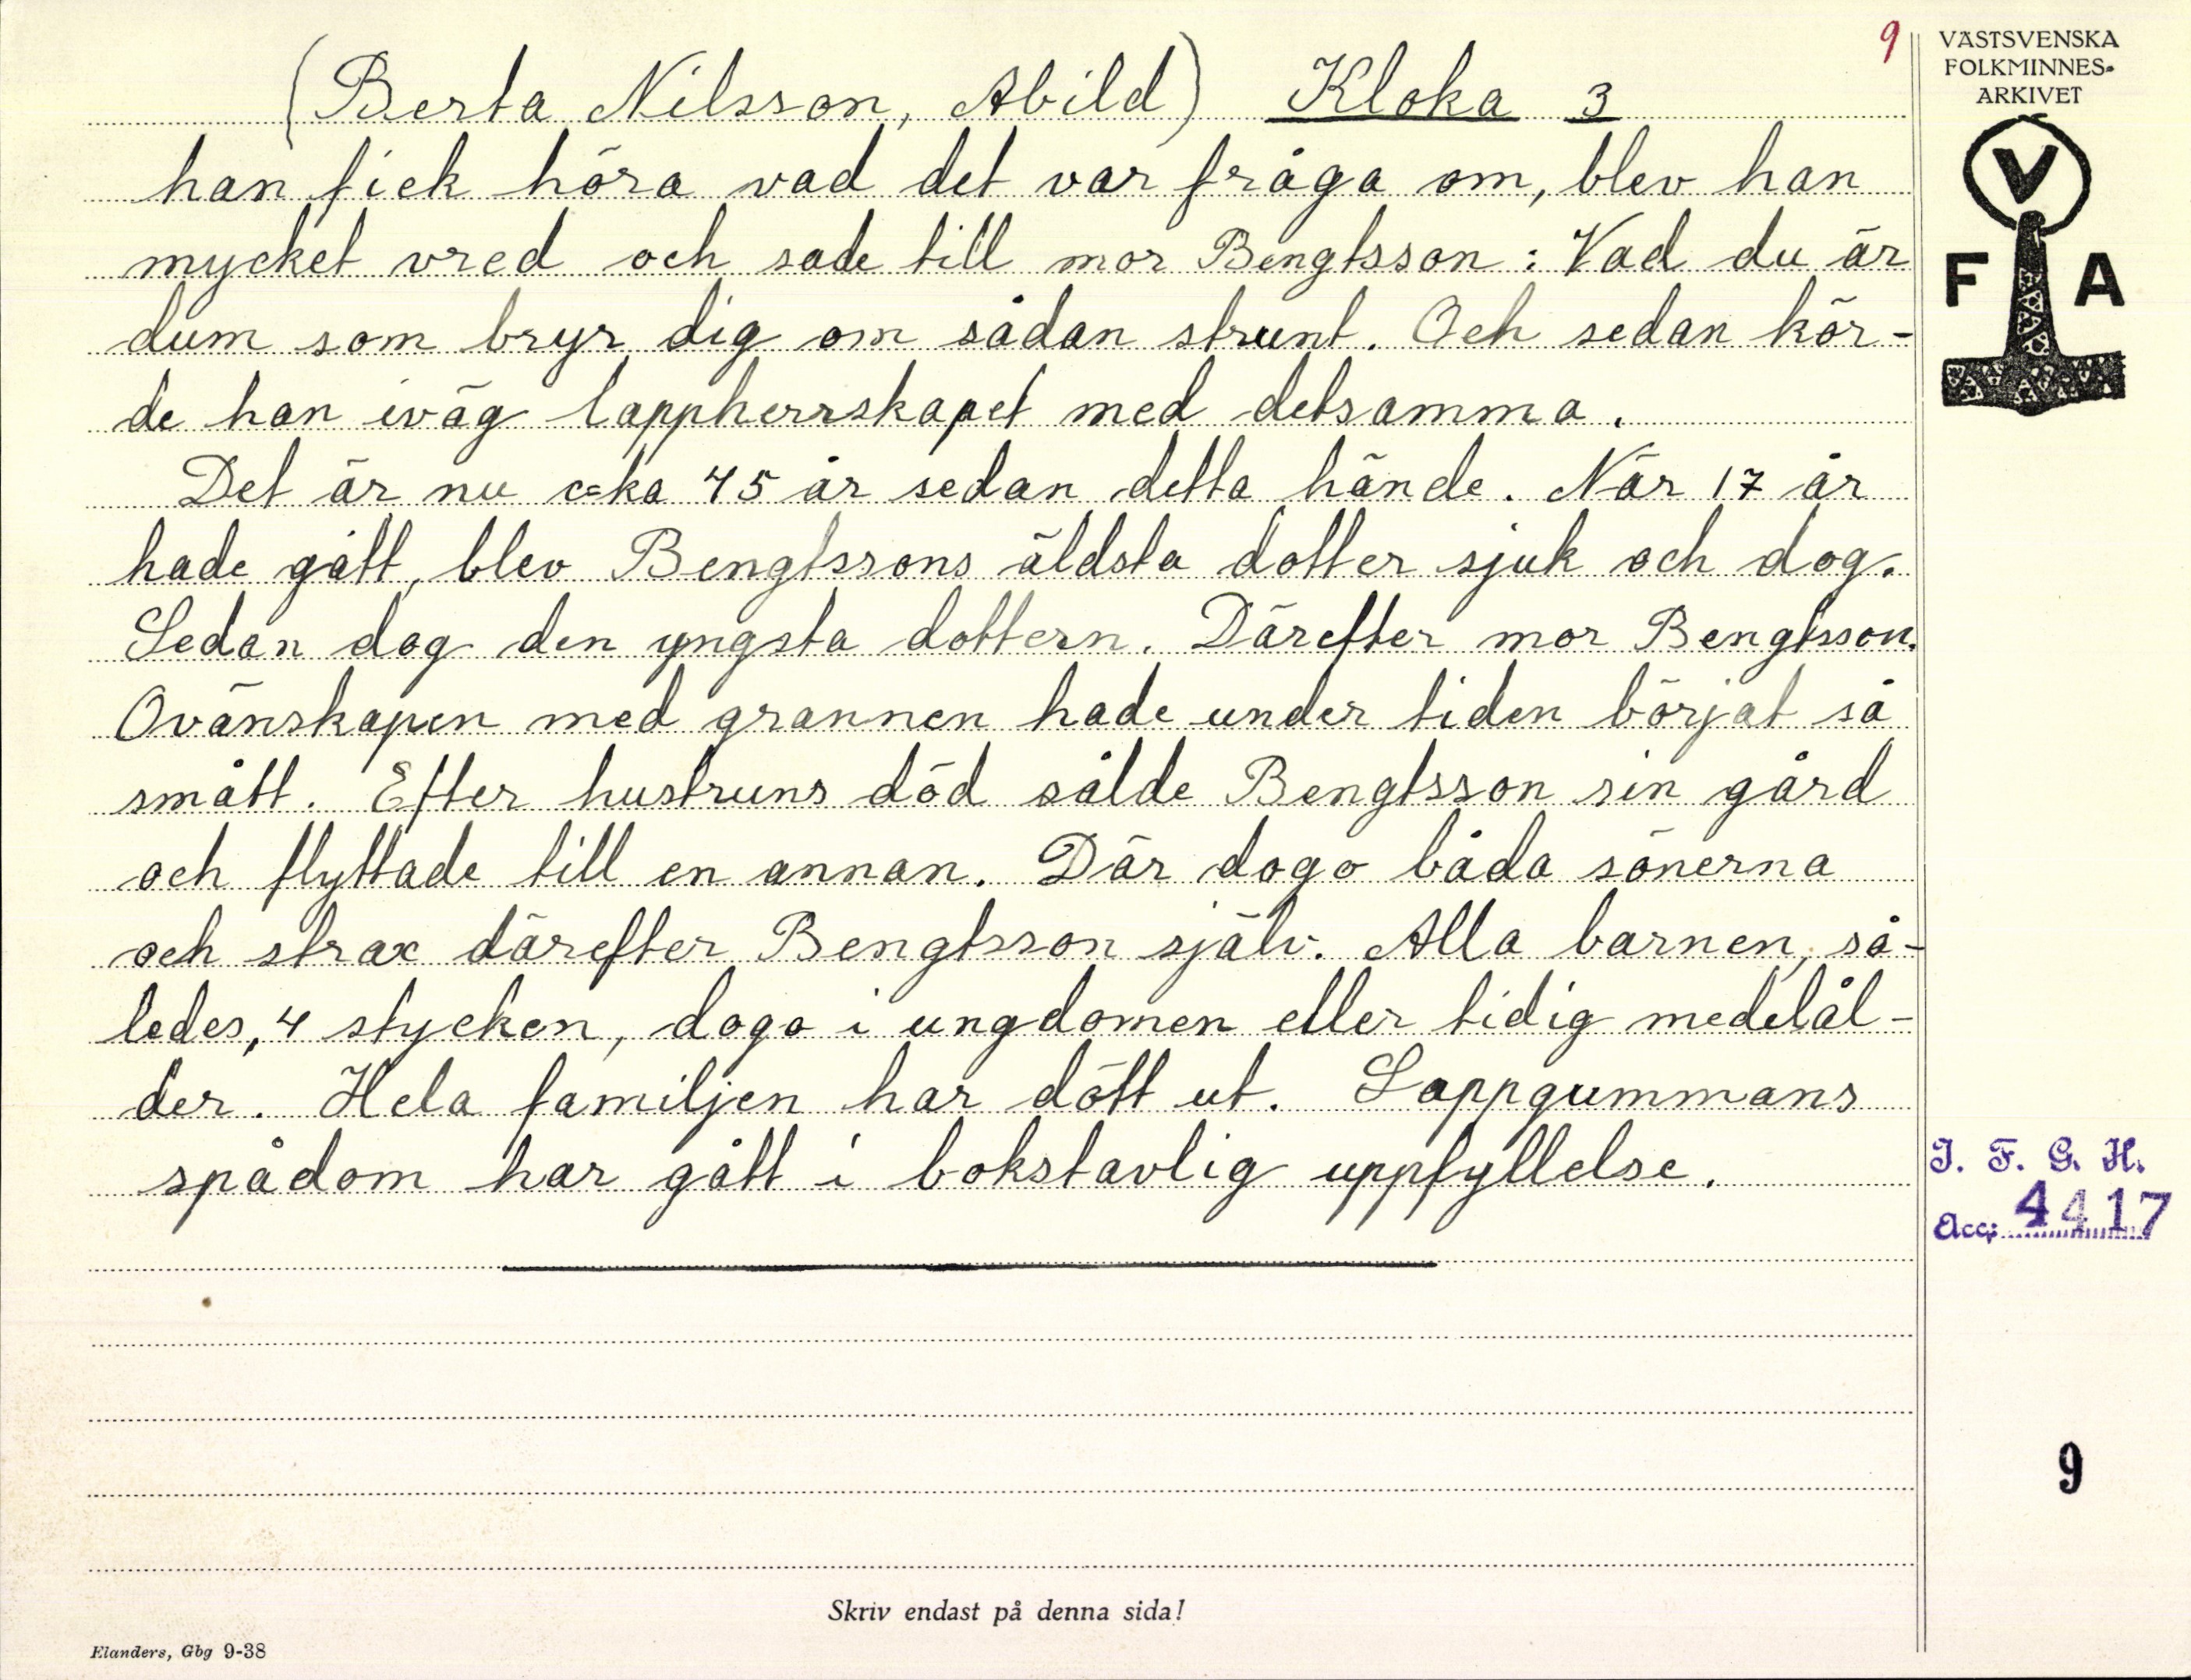 9
(Berta Nilsson, Abild) Kloka 3
han fick höra vad det var fråga om, blev han
mycket vred och sade till mor Bengtsson: Vad du är
dum som bryr dig om sådan strunt. Och sedan kör-
de han iväg lappherrskapet med detsamma.
Det är nu c=ka 45 år sedan detta hände. När 17 år
hade gått, blev Bengtssons äldsta dotter sjuk och dog.
Sedan dog den yngsta dottern. Därefter mor Bengtsson.
Ovänskapen med grannen hade under tiden börjat så
smått. Efter hustruns död sålde Bengtsson sin gård
och flyttade till en annan. Där dogo båda sönerna
och strax därefter Bengtsson själv. Alla barnen, så-
ledes, 4 stycken, dogo i ungdomen eller tidig medelål-
der. Hela familjen har dött ut. Lappgummans
spådom har gått i bokstavlig uppfyllelse.
Skriv endast på denna sida!
Elanders, Gbg 9-38
VÄSTSVENSKA
FOLKMINNES-
ARKIVET
V
F A
I. F. G. H.
Acc: 4417
9